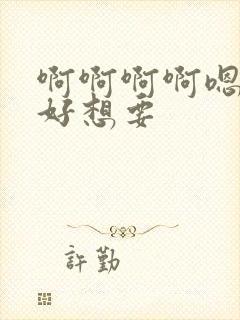 啊啊啊啊嗯
好想要
許勤